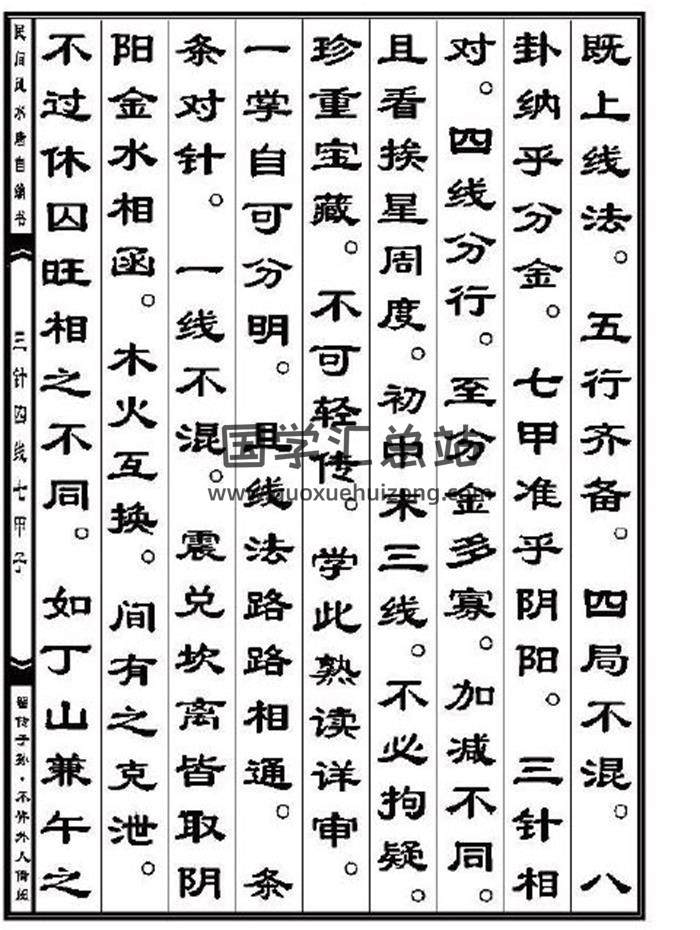 既上线法。五行齐备。四局不混。八
卦纳乎分金。七甲准乎阴阳。三针相
对。四线分行。至分金多寡。加减不同。
且看挨星周度。初末三线。不必拘疑。
珍重宝藏。不可轻传。学此熟读详审。
一学自可分明。且线法路路相通。条
条对针。一线不混。震兑坎离皆取阴
阳金水相函。木火互换。间有之克泄。
不过休囚旺相之不同。如丁山兼午之
民间风水唐自编书
三针四线七甲子
留传子孙·不外人借
国学汇总站
www.guoxuehuizong.com